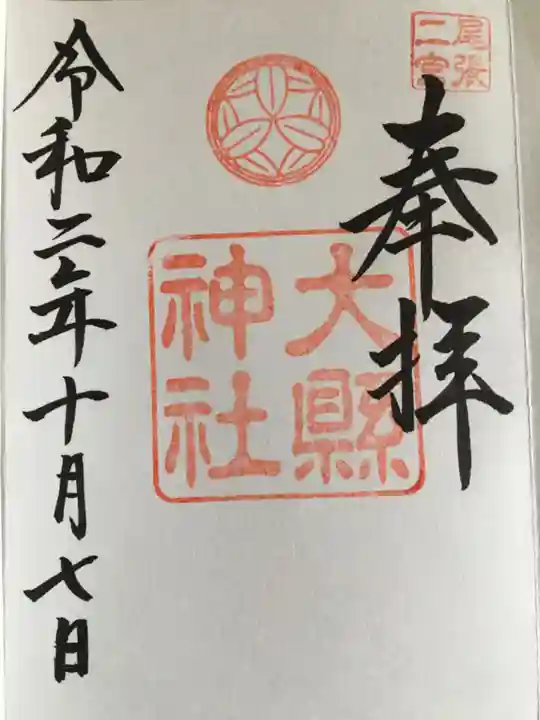 尾張
二宮
奉拝
大縣
神社
令和二年十月七日